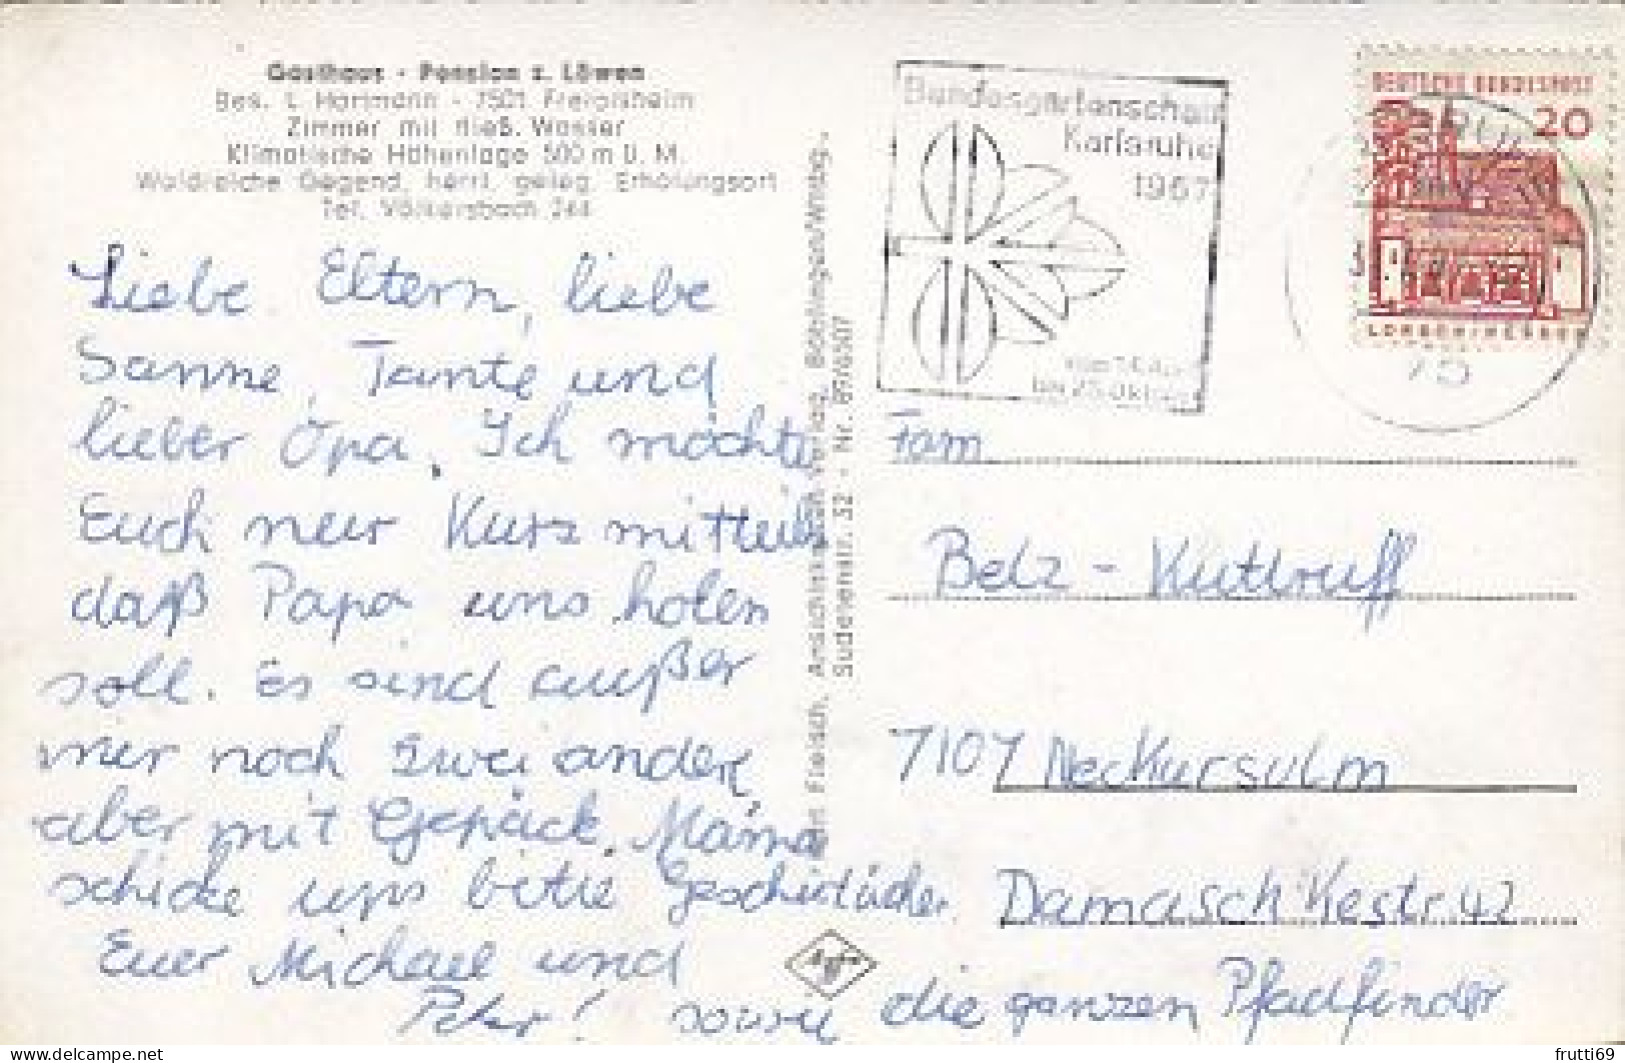 Gasthaus - Pension z. Löwen
Bes. L. Hartmann - 7501 Freiolsheim
Zimmer mit fließ. Wasser
Klimatische Höhenlage 500 m ü. M.
Waldreiche Gegend, herrl. geleg. Erholungsort
Tel. Völkersbach 244
Liebe Eltern, liebe
Sanne, Tante und
lieber Opa. Ich möchte
Euch nur Kurz mitteilen
daß Papa uns holen
soll. Es sind außer
mir noch zwei andere,
aber mit Gepäck. Mama
schicke uns bitte Geschirtücher.
Euer Michael und
Peter! sowie die ganzen Pfadfinder
Fleisch, Ansichtskarten-Verlag, Böblingen/Wrttbg.,
Sudetenstr. 52 - Nr.
Bundesgartenschau
Karlsruhe
1967
bis 25. Oktober
DEUTSCHE BUNDESPOST
20
LORSCH/HESSEN
75
Fam
Belz - Kuttruff
7107 Neckarsulm
Damaschkestr. 42
Agfa
www.delcampe.net
frutti69